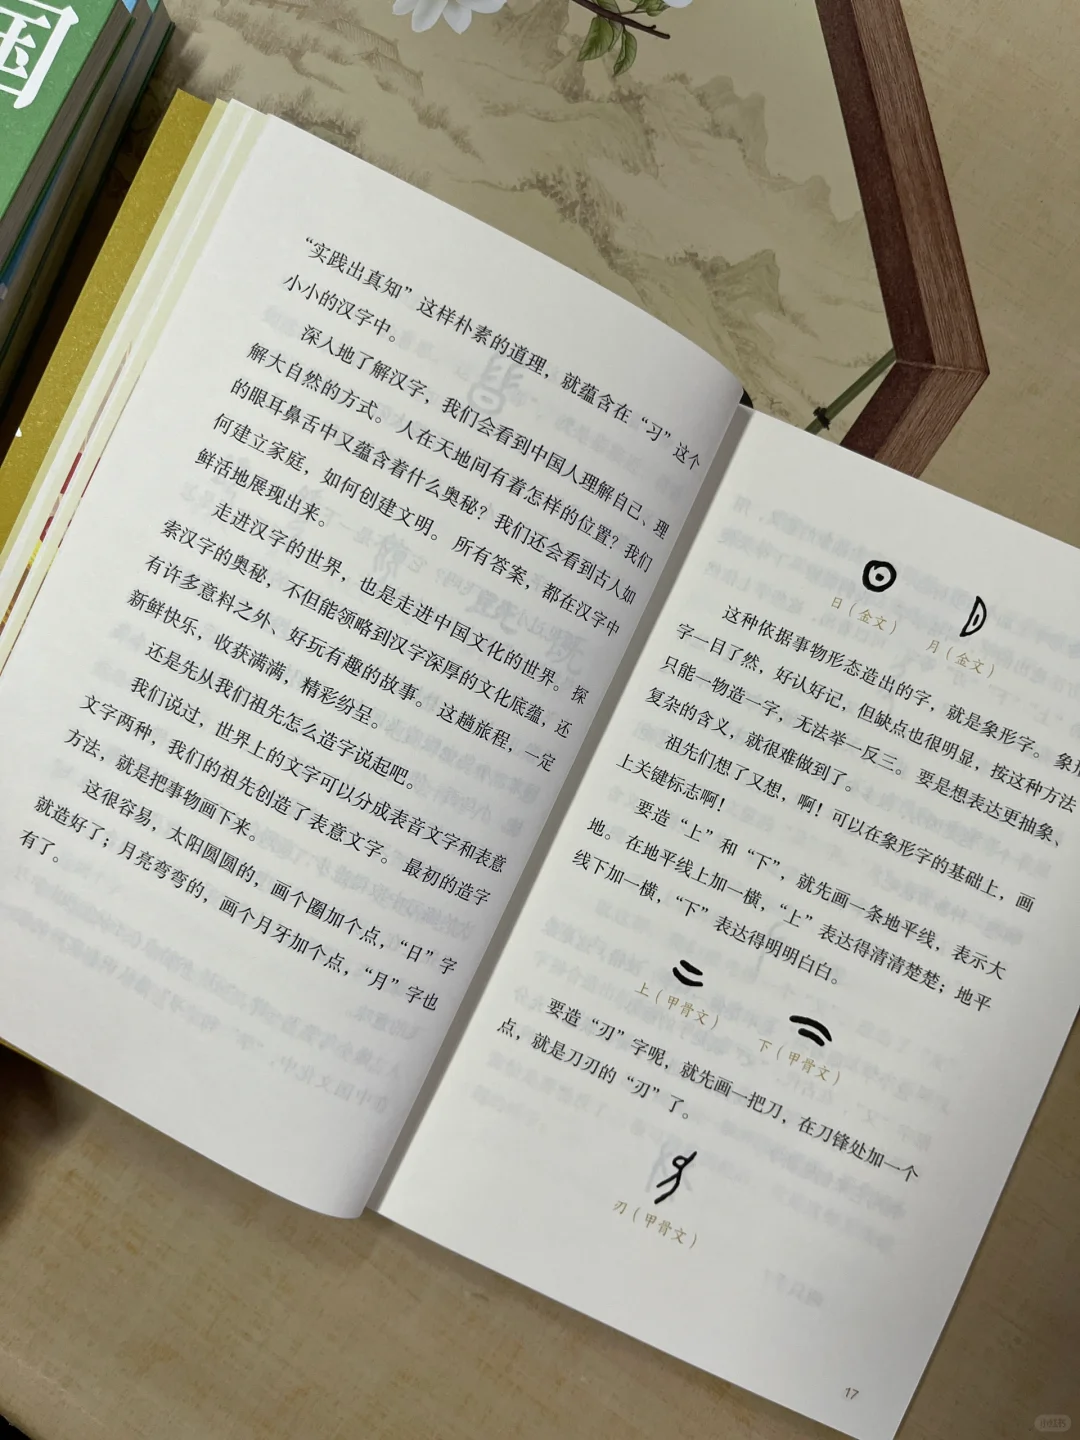 国
“实践出真知”这样朴素的道理，就蕴含在“习”这个
小小的汉字中。
深入地了解汉字，我们会看到中国人理解自己、理
解大自然的方式。人在天地间有着怎样的位置？我们
的眼耳鼻舌中又蕴含着什么奥秘？我们还会看到古人如
何建立家庭，如何创建文明。所有答案，都在汉字中
鲜活地展现出来。
走进汉字的世界，也是走进中国文化的世界。探
索汉字的奥秘，不但能领略到汉字深厚的文化底蕴，还
有许多意料之外、好玩有趣的故事。这趟旅程，一定
新鲜快乐，收获满满，精彩纷呈。
还是先从我们祖先怎么造字说起吧。
我们说过，世界上的文字可以分成表音文字和表意
文字两种，我们的祖先创造了表意文字。最初的造字
方法，就是把事物画下来。
这很容易，太阳圆圆的，画个圈加个点，“日”字
就造好了；月亮弯弯的，画个月牙加个点，“月”字也
有了。
日（金文）
月（金文）
这种依据事物形态造出的字，就是象形字。象形
字一目了然，好认好记，但缺点也很明显，按这种方法
只能一物造一字，无法举一反三。要是想表达更抽象、
复杂的含义，就很难做到了。
祖先们想了又想，啊！可以在象形字的基础上，画
上关键标志啊！
要造“上”和“下”，就先画一条地平线，表示大
地。在地平线上加一横，“上”表达得清清楚楚；地平
线下加一横，“下”表达得明明白白。
上（甲骨文）
下（甲骨文）
要造“刃”字呢，就先画一把刀，在刀锋处加一个
点，就是刀刃的“刃”了。
刃（甲骨文）
17